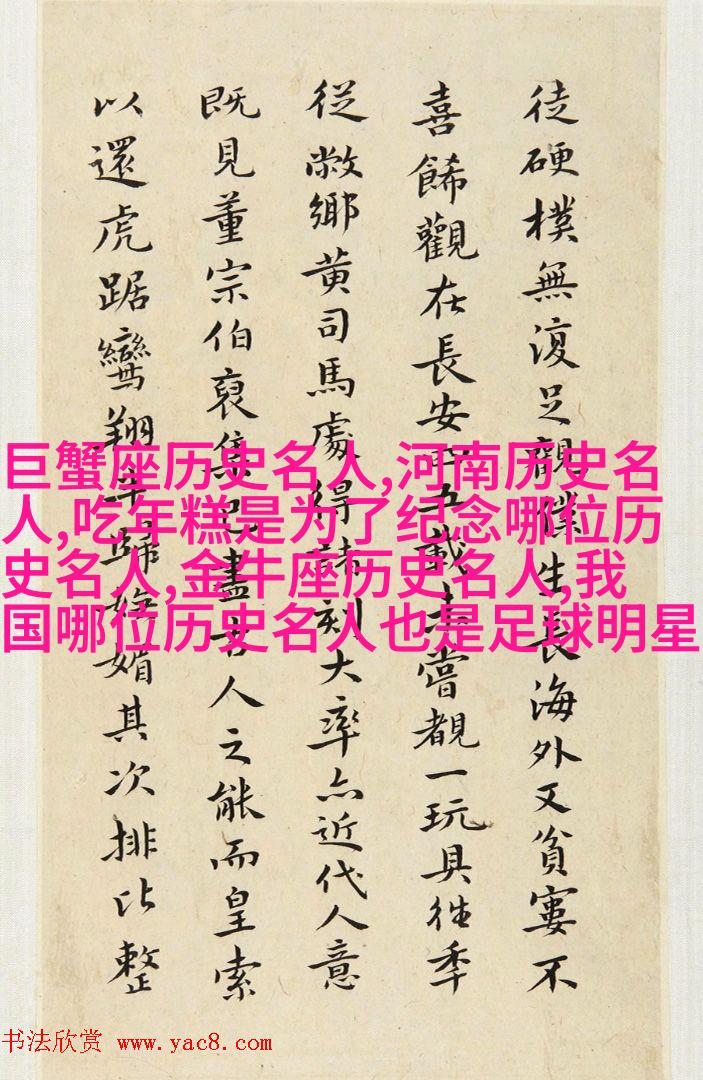 徒硬樸無復足觀僕生長海外又貧窶不
喜餙觀在長安五載未嘗覩一玩具往季
從敝鄉黄司馬處得諸刻大率亦近代人意
既見董宗伯裒集盡古人之能而皇索
以還虎踞鸞翔歸媚其次排比整
巨蟹座历史名人,河南历史名
人,吃年糕是为了纪念哪位历
史名人,金牛座历史名人,我
国哪位历史名人也是足球明星
书法欣赏 www.yac8.com